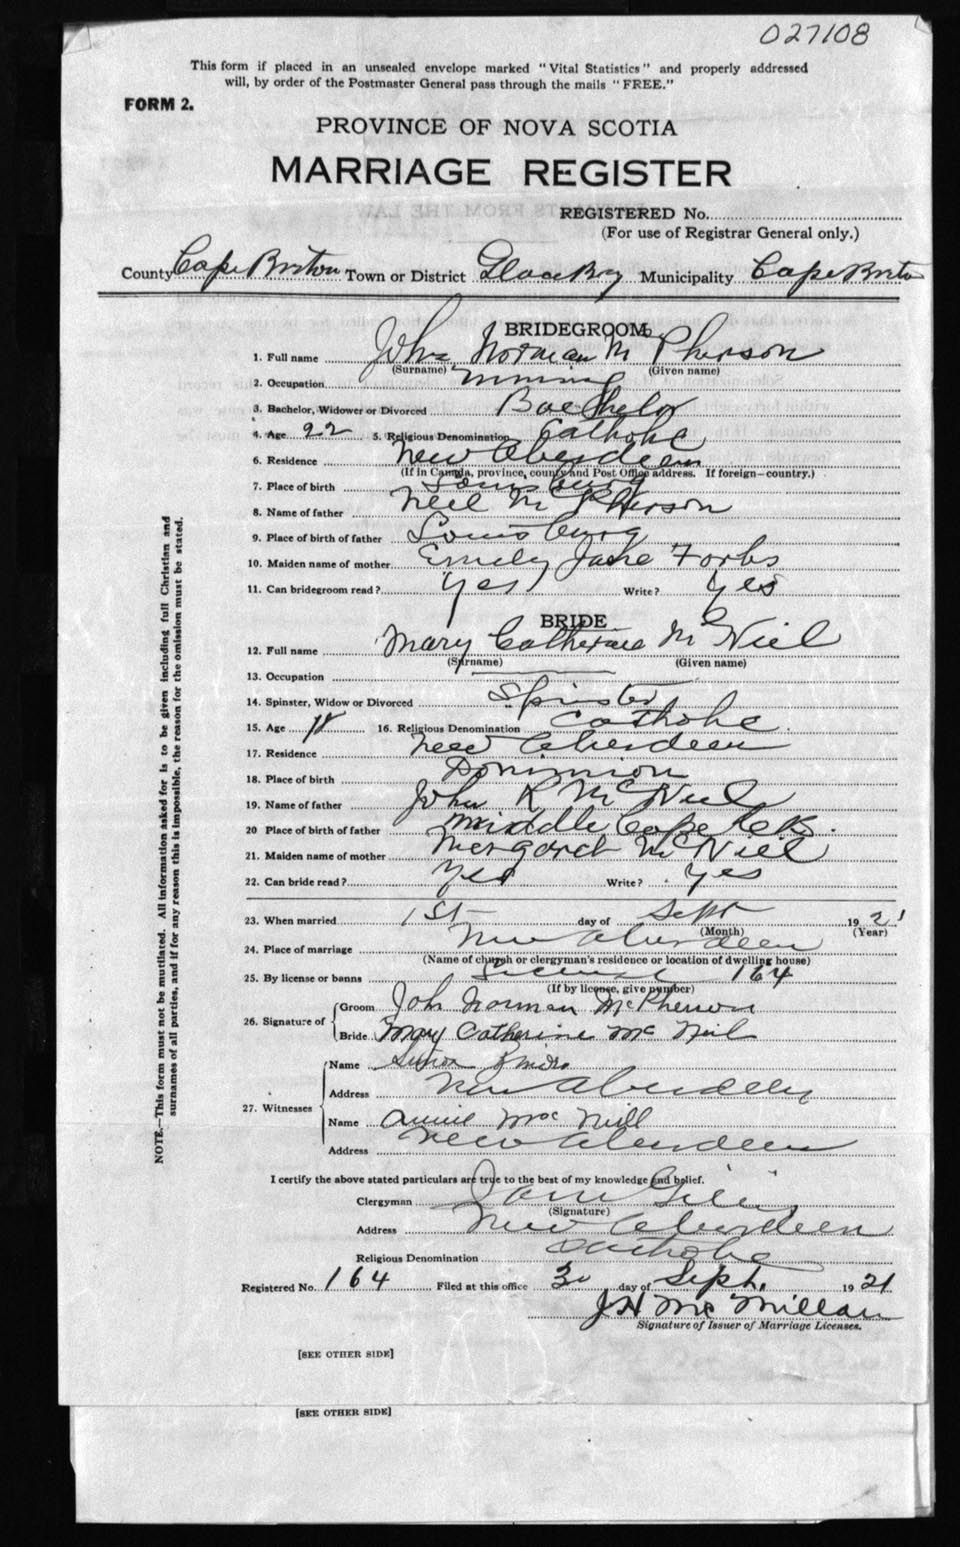 027108
This form if placed in an unsealed envelope marked "Vital Statistics" and properly addressed
will, by order of the Postmaster General pass through the mails "FREE."
FORM 2.
PROVINCE OF NOVA SCOTIA
MARRIAGE REGISTER
REGISTERED No.
(For use of Registrar General only.)
County Cape Breton Town or District Glace Bay Municipality Cape Breton
BRIDEGROOM
1. Full name John Norman McPherson
(Surname) (Given name)
2. Occupation mining
3. Bachelor, Widower or Divorced Bachelor
4. Age 22 5. Religious Denomination Catholic
6. Residence New Aberdeen
(If in Canada, province, county and Post Office address. If foreign—country.)
7. Place of birth Louisburg
8. Name of father Neil McPherson
9. Place of birth of father Louisburg
10. Maiden name of mother Emily Jane Forbs
11. Can bridegroom read? Yes Write? Yes
BRIDE
12. Full name Mary Catherine McNiel
(Surname) (Given name)
13. Occupation
14. Spinster, Widow or Divorced Spinster
15. Age 18 16. Religious Denomination Catholic
17. Residence New Aberdeen
18. Place of birth Dominion
19. Name of father John R McNiel
20 Place of birth of father Middle Cape C.B.
21. Maiden name of mother Margaret McNiel
22. Can bride read? Yes Write? Yes
23. When married 1st day of Sept 1921
(Month) (Year)
24. Place of marriage New Aberdeen
(Name of church or clergyman's residence or location of dwelling house)
25. By license or banns License 164
(If by license, give number)
26. Signature of Groom John Norman McPherson
Bride Mary Catherine McNeil
27. Witnesses Name Simon
Address New Aberdeen
Name Annie MacNeill
Address New Aberdeen
I certify the above stated particulars are true to the best of my knowledge and belief.
Clergyman
(Signature)
Address New Aberdeen
Religious Denomination Catholic
Registered No. 164 Filed at this office day of Sept. 1921
J H McMillan
Signature of Issuer of Marriage Licenses.
[SEE OTHER SIDE]
[SEE OTHER SIDE]
NOTE.—This form must not be mutilated. All information asked for is to be given including full Christian and
surnames of all parties, and if for any reason this is impossible, the reason for the omission must be stated.